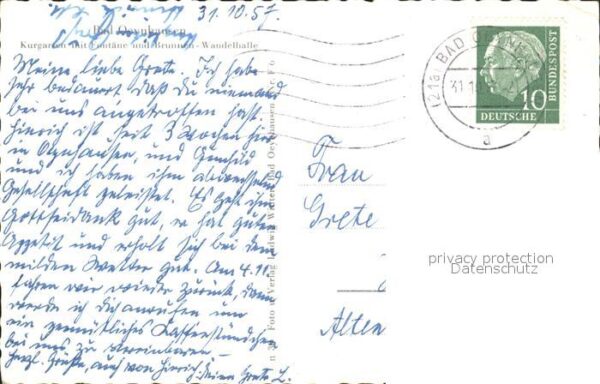 31.10.57.
Bad Oeynhausen
Kurgarten mit Fontäne und Brunnen-Wandelhalle
Meine liebe Grete. Ich habe
sehr bedauert daß du niemand
bei uns angetroffen hast.
Hinrich ist seit 3 Wochen hier
in Oeynhausen, und Gunhild
und ich haben ihm abwechselnd
Gesellschaft geleistet. Es geht ihm
Gottseidank gut, er hat guten
Appetit und erholt sich bei dem
milden Wetter gut. Am 4.11
fahren wir wieder zurück, dann
werde ich dich anrufen um
ein gemütliches Kaffeestündchen
bei uns zu vereinbaren –
Herzl. Grüße, auch von Hinrich, deine Grete L.
Foto u. Verlag Ludwig Bad Oeynhausen
BAD
31.1
a
10
DEUTSCHE
BUNDESPOST
Frau
Grete
Alten
privacy protection
Datenschutz